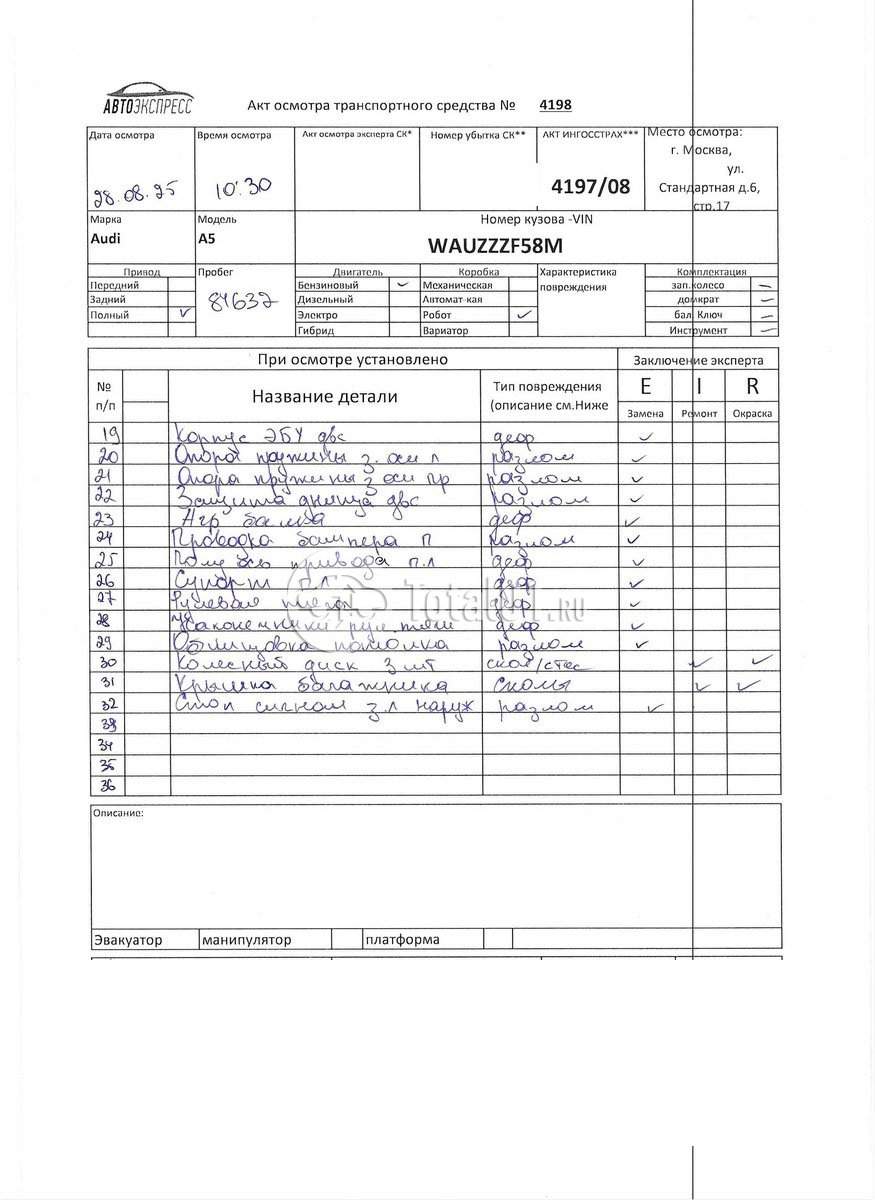 АВТОЭКСПРЕСС
Акт осмотра транспортного средства № 4198
Дата осмотра Время осмотра Акт осмотра эксперта СК* Номер убытка СК** АКТ ИНГОССТРАХ*** Место осмотра:
г. Москва,
ул.
Стандартная д.6,
стр.17
28.08.25 10:30 4197/08
Марка Модель Номер кузова -VIN
Audi A5 WAUZZZF58M
Привод Пробег Двигатель Коробка Характеристика Комплектация
Передний Бензиновый ✓ Механическая повреждения зап.колесо —
Задний Дизельный Автомат-кая домкрат —
Полный ✓ 81637 Электро Робот ✓ бал. Ключ —
Гибрид Вариатор Инструмент —
При осмотре установлено Заключение эксперта
№ п/п Название детали Тип повреждения (описание см.Ниже E I R
Замена Ремонт Окраска
19 Корпус ЭБУ двс деф ✓
20 Опора пружины з. оси л разлом ✓
21 Опора пружины з оси пр разлом ✓
22 Защита днища двс разлом ✓
23 Нар балка деф ✓
24 Проводка бампера п разлом ✓
25 Полуось привода п.л деф ✓
26 Супорт п.л деф ✓
27 Рулевая деф ✓
28 Наконечники рул. тяги деф ✓
29 Облицовка потолка разлом ✓
30 Колесный диск 3 шт скол/стес ✓ ✓
31 Крышка багажника сколы ✓ ✓
32 Стоп сигнал з.л наруж разлом ✓
33
34
35
36
Total01.RU
Описание:
Эвакуатор манипулятор платформа